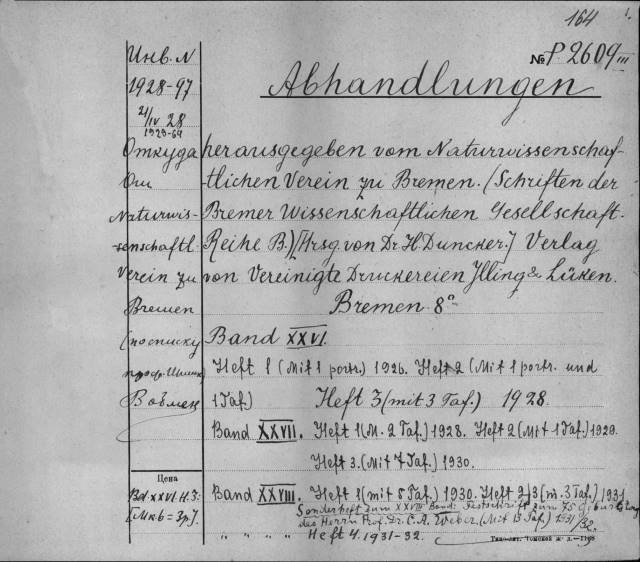 164
№ P 2609 III
Abhandlungen
Инв. N
1928-97
21/IV 28
1929-64
Откуда
От
Naturwis-
-senschaftl.
Verein zu
Bremen
(по списку
проф.
В обмен
Цена
Bd XXVI. H. 3:
[Mкb = 3р].
herausgegeben vom Naturwissenschaf-
-tlichen Verein zu Bremen. (Schriften der
Bremer Wissenschaftlichen Gesellschaft.
Reihe B.) [Hrsg. von Dr. H. Duncker.] Verlag
von Vereinigte Druckereien Illing & Lüken.
Bremen 8°
Band XXVI.
Heft 1 (Mit 1 portr.) 1926. Heft 2 (Mit 1 portr. und
1 Taf.) Heft 3 (mit 3 Taf.) 1928.
Band XXVII. Heft 1 (M. 2 Taf.) 1928. Heft 2 (Mit 1 Taf.) 1929.
Heft 3. (Mit 7 Taf.) 1930.
Band XXVIII. Heft 1 (mit 5 Taf.) 1930. Heft 2/3 (m. 3 Taf.) 1931
Sonderheft zum XXVIII Band: Festschrift zum 75 Geburtstag
des Herrn Prof. Dr. C. A. Weber. (Mit 13 Taf.) 1931/32.
" " " " Heft 4. 1931-32.
Типо-лит. Томской ж. д.